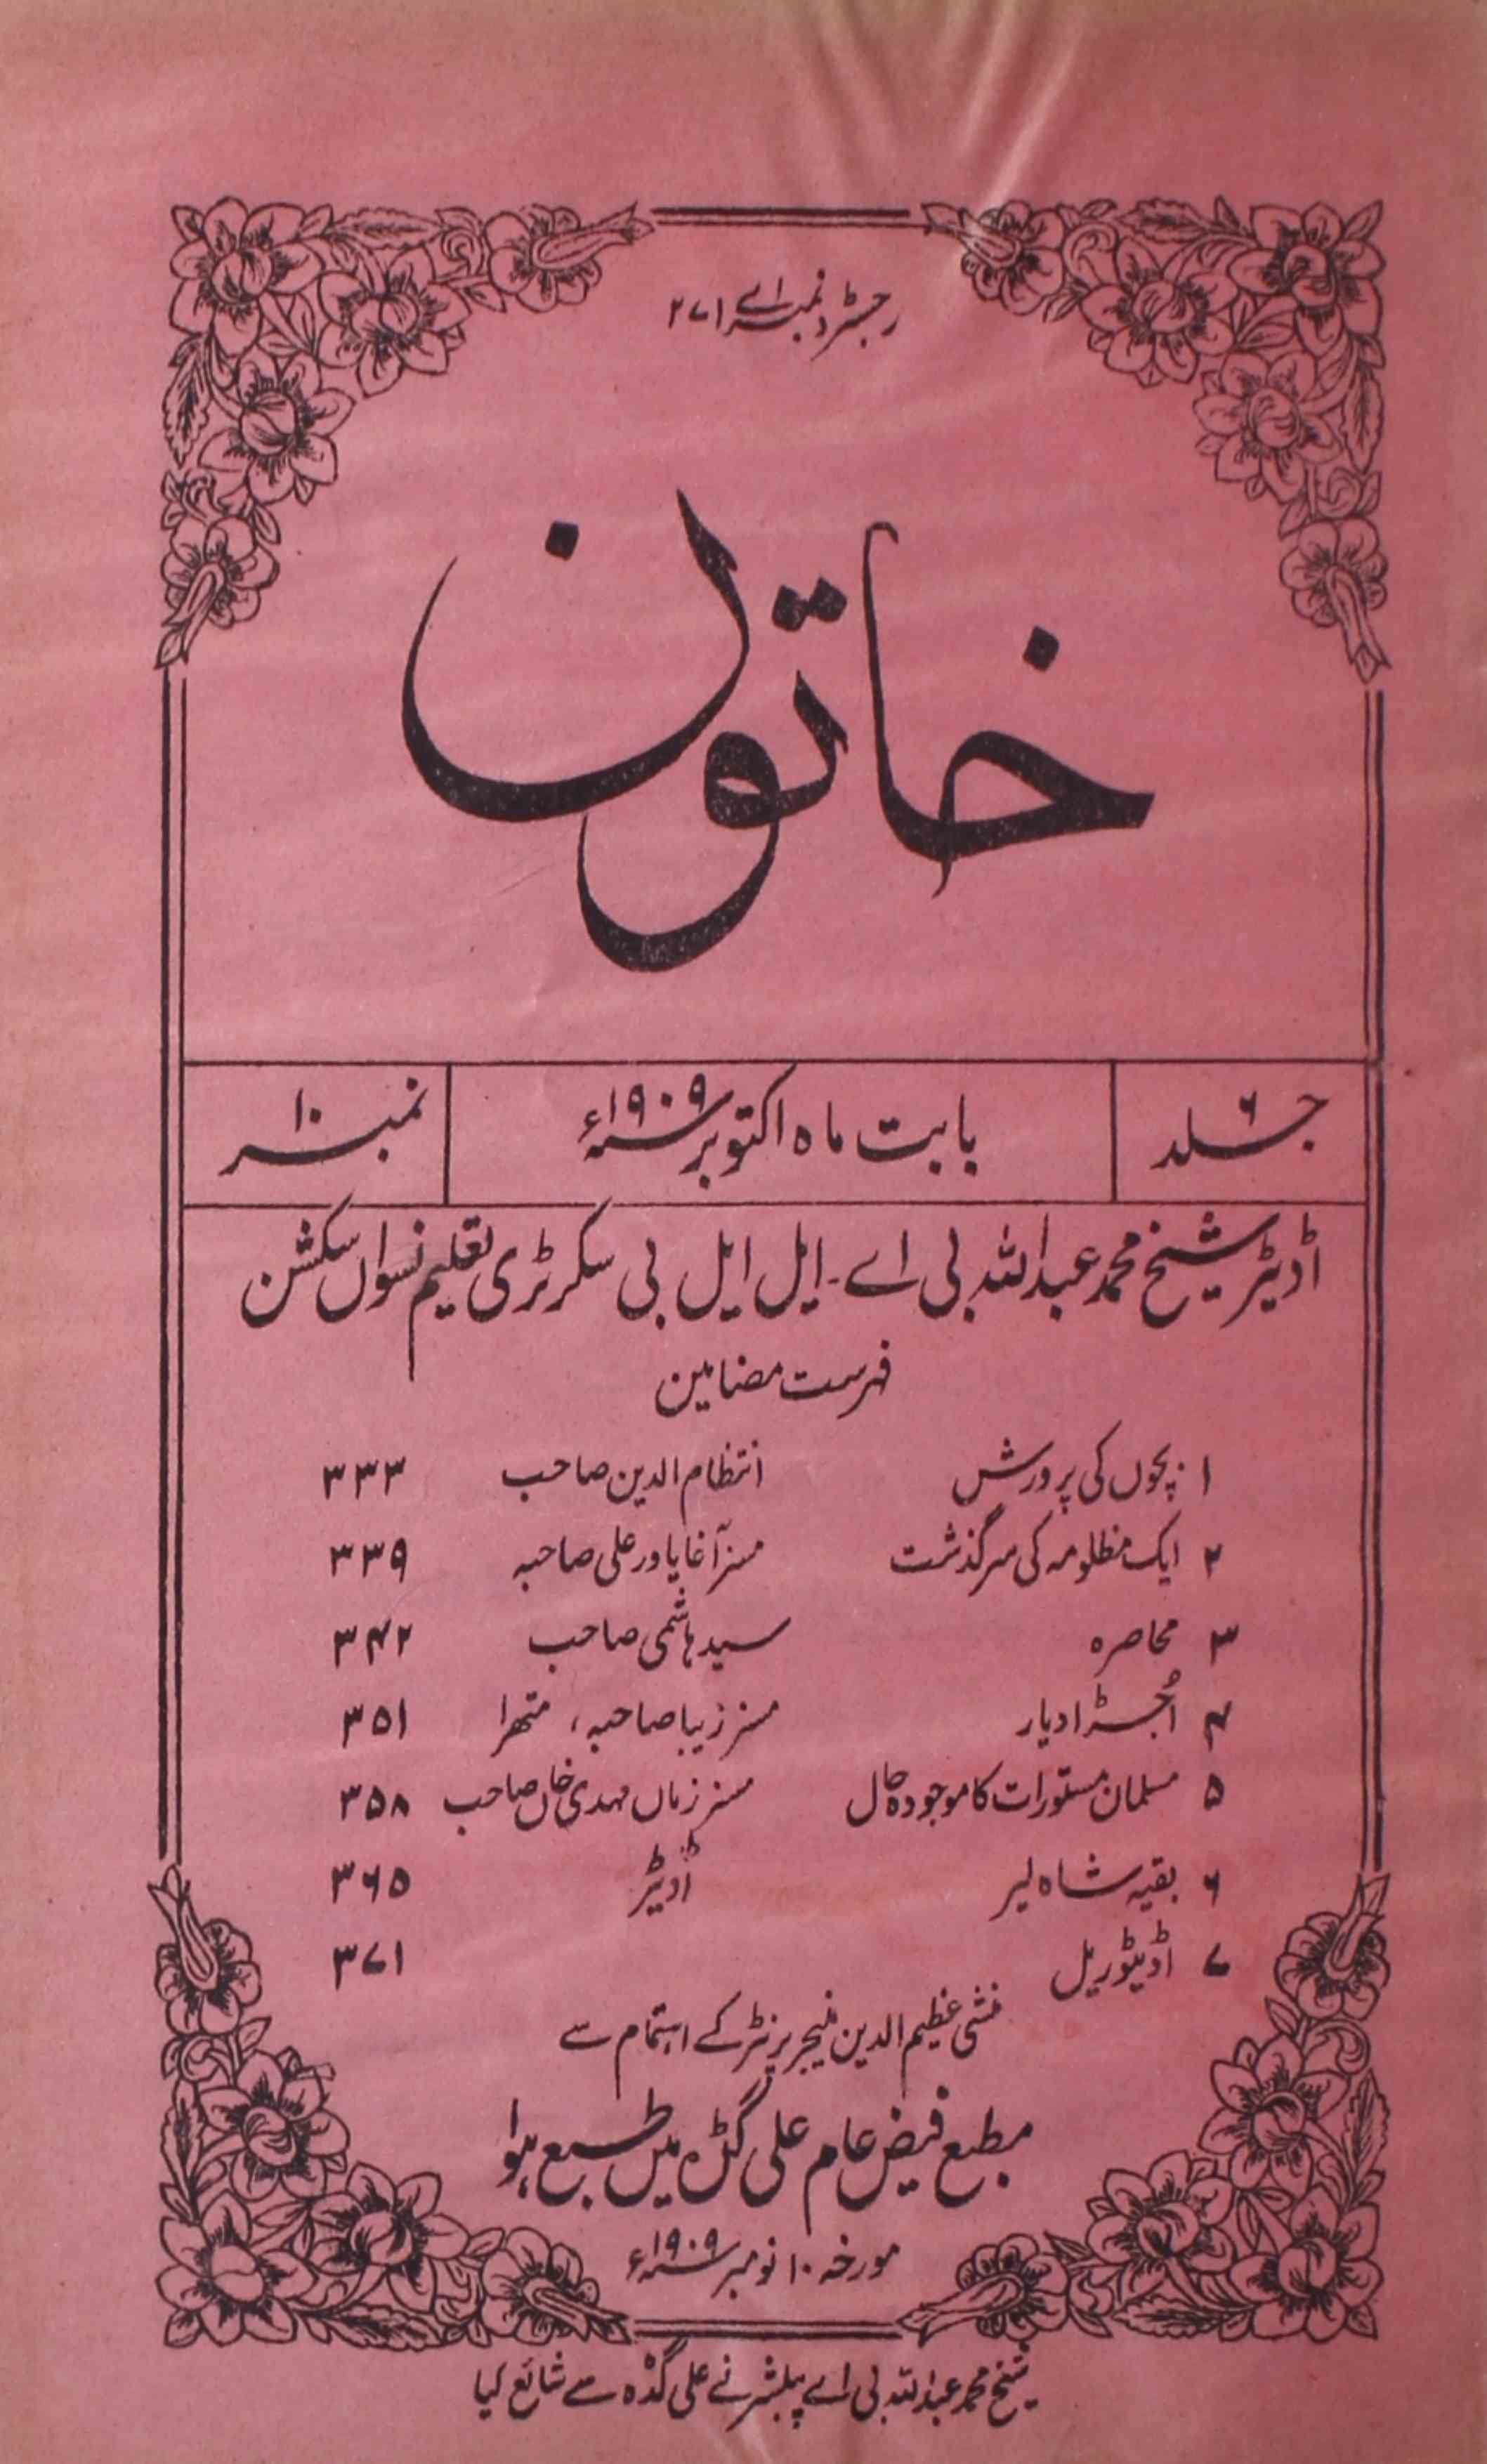 رجسٹرڈ نمبر اے ۲۷۱
خاتون
جلد ۶ بابت ماہ اکتوبر سنہ ۱۹۰۹ء نمبر ۱۰
اڈیٹر شیخ محمد عبداللہ بی اے - ایل ایل بی سکرٹری تعلیم نسواں سکشن
فہرست مضامین
۱ بچوں کی پرورش انتظام الدین صاحب ۳۳۳
۲ ایک مظلومہ کی سرگذشت مسز آغا یاور علی صاحبہ ۳۳۹
۳ محاصرہ سید ہاشمی صاحب ۳۴۲
۴ اُجڑا دیار مسز زیبا صاحبہ، متھرا ۳۵۱
۵ مسلمان مستورات کا موجودہ حال مسز زماں مہدی خاں صاحب ۳۵۸
۶ بقیہ شاہ لیر اڈیٹر ۳۶۵
۷ اڈیٹوریل ۳۷۱
منشی عظیم الدین منیجر پرنٹر کے اہتمام سے
مطبع فیض عام علی گڑہ میں طبع ہوا
مورخہ ۱۰ نومبر سنہ ۱۹۰۹ء
شیخ محمد عبداللہ بی اے پبلشر نے علی گڈہ سے شائع کیا